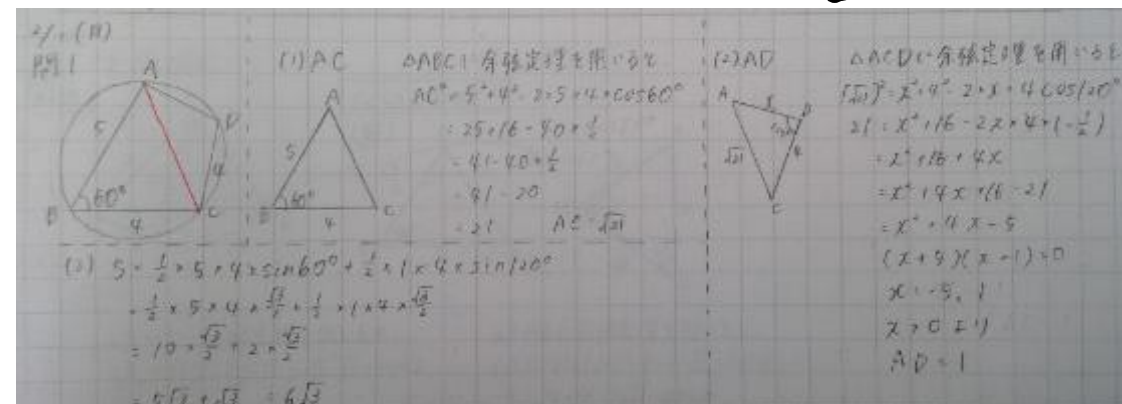 問1
A
5
D
4
60°
B
4
C
(1) AC
A
5
60°
B
4
C
△ABCに余弦定理を用いると
AC²=5²+4²-2×5×4×cos60°
=25+16-40×1/2
=41-40×1/2
=41-20
=21
AC=√21
(2) AD
A
x
D
120°
√21
4
C
△ACDに余弦定理を用いると
(√21)²=x²+4²-2×x×4cos120°
21=x²+16-2x×4×(-1/2)
=x²+16+4x
=x²+4x+16-21
=x²+4x-5
(x+5)(x-1)=0
x=-5, 1
x>0より
AD=1
S=1/2×5×4×sin60°+1/2×1×4×sin120°
=1/2×5×4×√3/2+1/2×1×4×√3/2
=10×√3/2+2×√3/2
=5√3+√3 =6√3